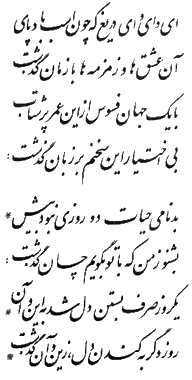 ای وای وای دریغ که چون اسب بادپای
آن عشق‌ها و زمزمه‌ها با زمان گذشت
با یک جهان فسوس از این عمر پرشتاب
بی اختیار این سخنم بر زبان گذشت:
بدنامی حیات دو روزی نبود بیش*
بشنو ز من که با تو بگویم چسان گذشت:
یکروز صرف بستن دل شد به این و آن*
روز دگر به کندن دل، زین و آن گذشت*